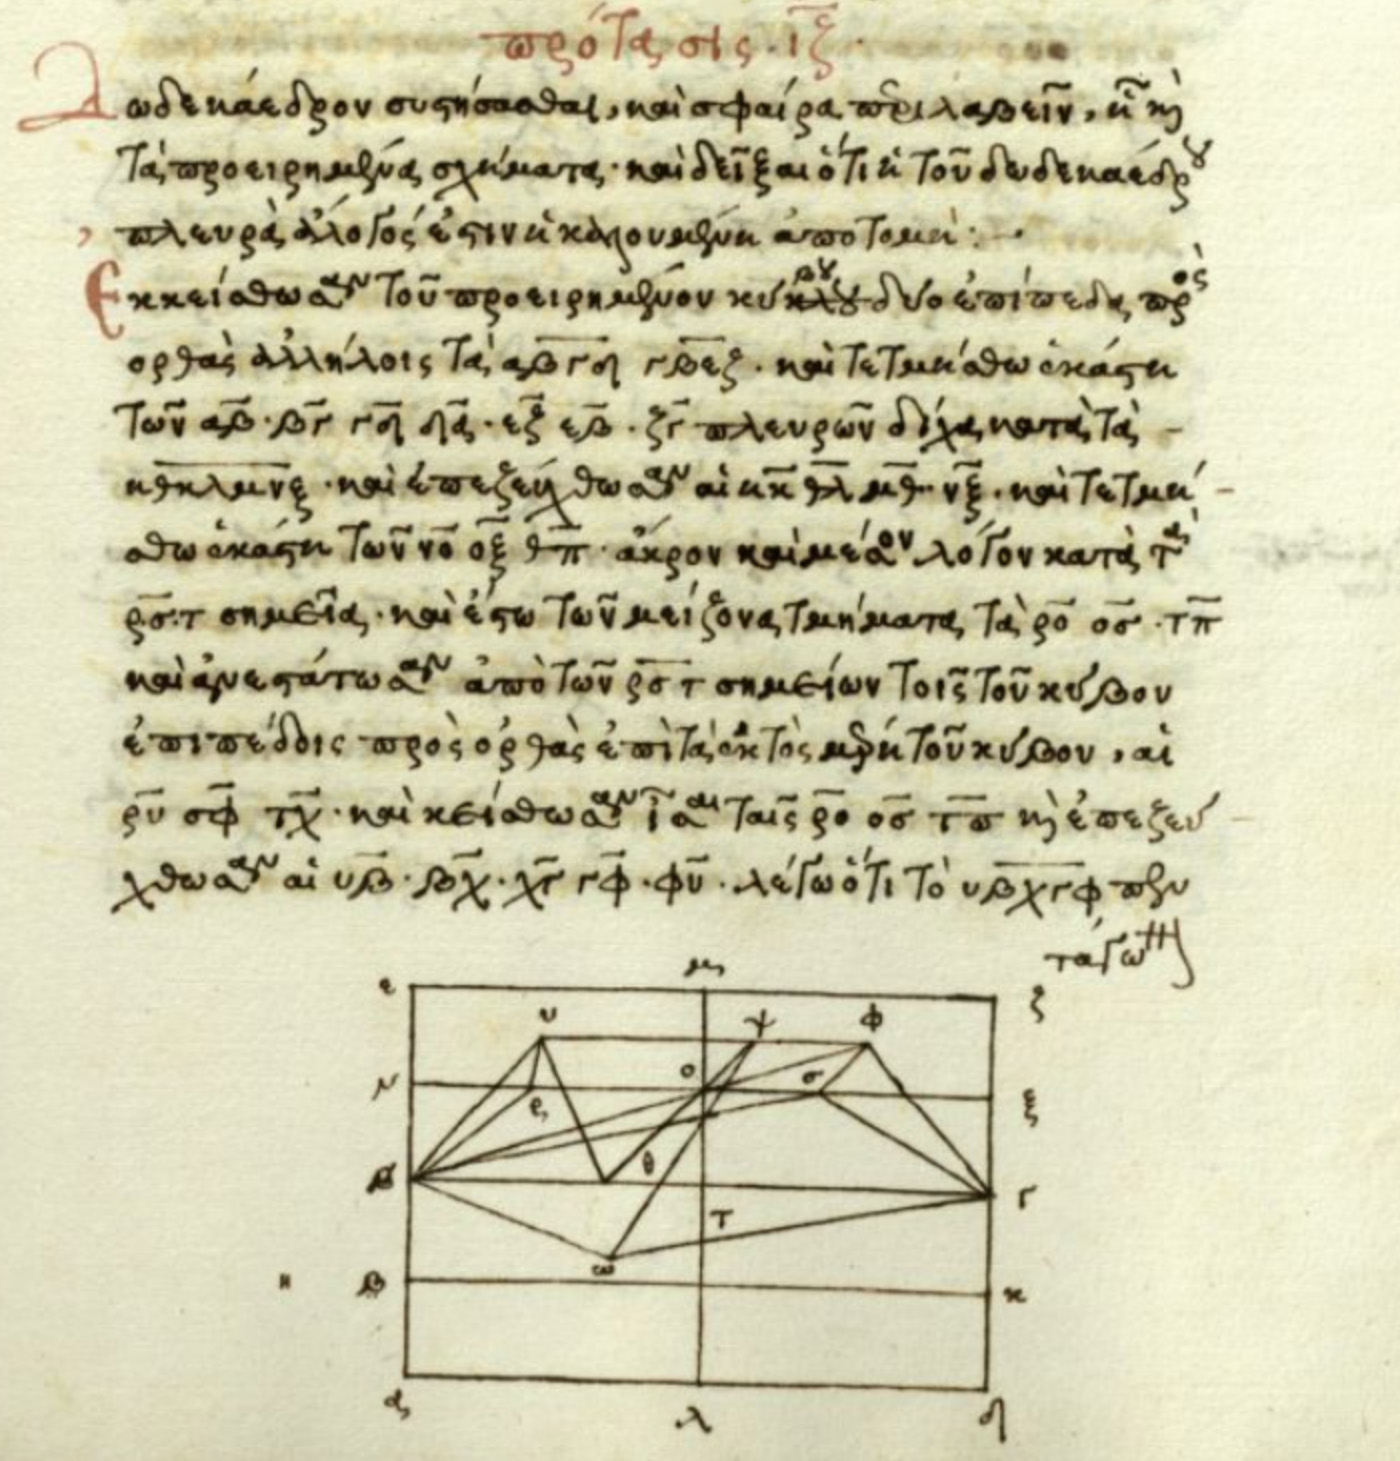 πρότασις ιζ
Δωδεκάεδρον συστήσασθαι, καὶ σφαίρα περιλαβεῖν, ᾗ κὶ
τὰ προειρημένα σχήματα· καὶ δεῖξαι ὅτι ἡ τοῦ δωδεκαέδρου
πλευρὰ ἄλογός ἐστιν ἡ καλουμένη ἀποτομή:
Ἐκκείσθωσαν τοῦ προειρημένου κύβου δύο ἐπίπεδα πρὸς
ορθὰς ἀλλήλοις τὰ αβγδ γβεζ· καὶ τετμήσθω ἑκάστη
τῶν αβ· βγ γδ δα· εζ εβ· ζγ πλευρῶν δίχα κατὰ τὰ
ηθκλμνξ· καὶ ἐπεζεύχθωσαν αἱ ηκ θλ μθ· νξ· καὶ τετμή
σθω ἑκάστη τῶν νο οξ θπ· ἄκρον καὶ μέσον λόγον κατὰ τὰ
ρσ·τ σημεῖα· καὶ ἔστω τῶν μείζονα τμήματα τὰ ρο οσ·τπ
καὶ ἀνεστάτωσαν ἀπὸ τῶν ρστ σημείων τοῖς τοῦ κύβου
ἐπιπέδοις πρὸς ὀρθὰς ἐπὶ τὰ ἐκτὸς μέρη τοῦ κύβου, αἱ
ρυ σφ τχ· καὶ κείσθωσαν ἴσαι ταῖς ρο οσ τπ κὶ ἐπεζεύ
χθωσαν αἱ υβ· βχ· χγ γφ· φυ· λέγω ὅτι τὸ υβχγφ πεν
τάγωνον
ε μ ζ
υ ψ φ
ν ο σ ξ
ρ
β θ γ
τ
ω
η β κ
α λ δ